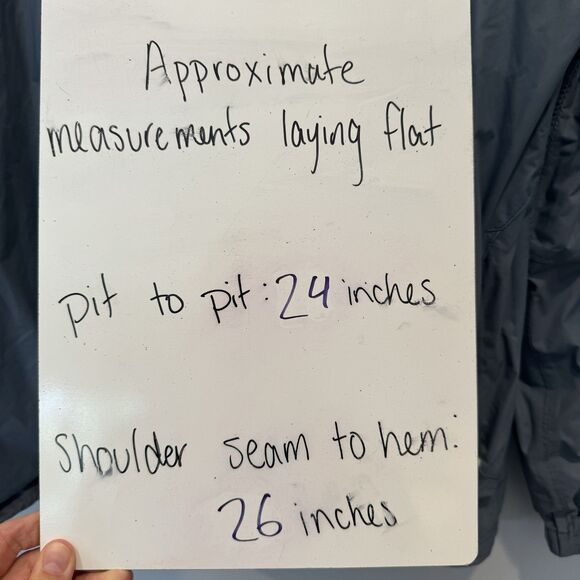 Approximate
measurements laying flat
pit to pit: 24 inches
shoulder seam to hem:
26 inches